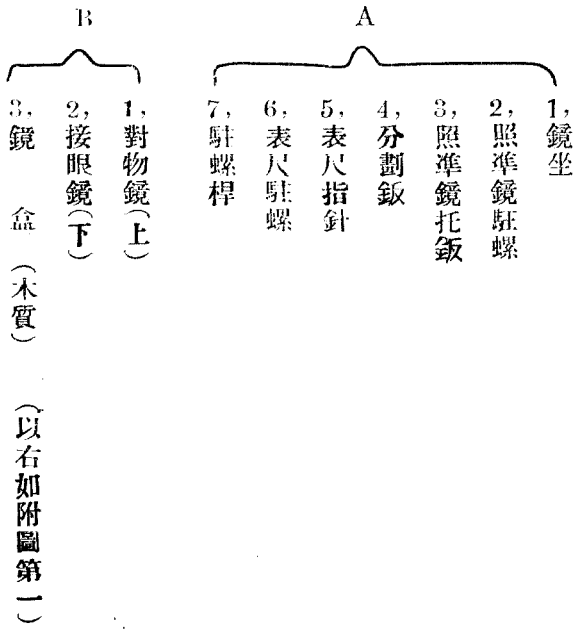 A
1,鏡坐
2,照準鏡駐螺
3,照準鏡托鈑
4,分劃鈑
5,表尺指針
6,表尺駐螺
7,駐螺桿
B
1,對物鏡(上)
2,接眼鏡(下)
3,鏡盒(木質)(以右如附圖第一)